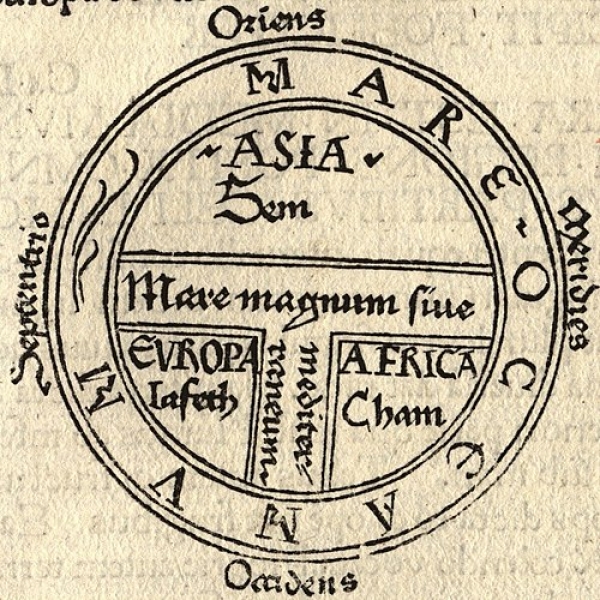 Oriens
MARE OCCEANVM
Septentrio
Meridies
ASIA
Sem
Mare magnum siue
mediter
raneum
EVROPA
Iafeth
AFRICA
Cham
Occidens